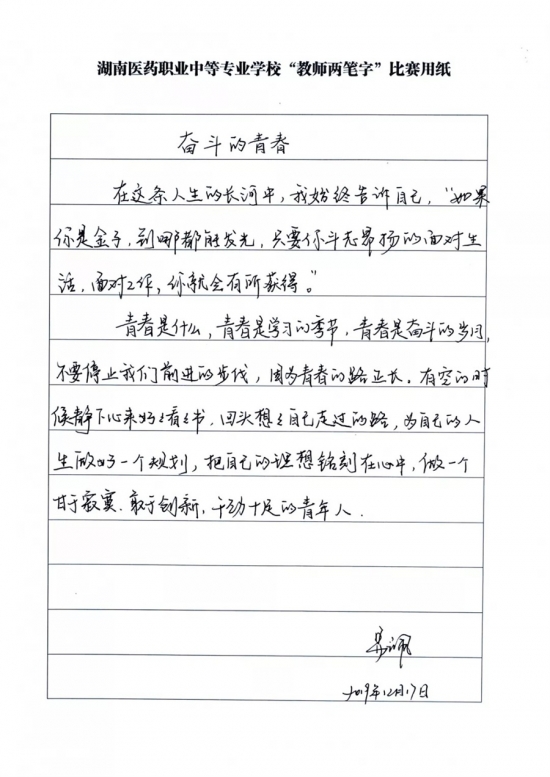 湖南医药职业中等专业学校“教师两笔字”比赛用纸
奋斗的青春
在这条人生的长河中，我始终告诉自己，“如果
你是金子，到哪都能发光，只要你斗志昂扬的面对生
活，面对工作，你就会有所获得。”
青春是什么，青春是学习的季节，青春是奋斗的岁月，
不要停止我们前进的步伐，因为青春的路正长。有空的时
候静下心来好好看看书，回头想想自己走过的路，为自己的人
生做好一个规划，把自己的理想铭刻在心中，做一个
甘于寂寞．敢于创新，干劲十足的青年人．
2019年12月17日